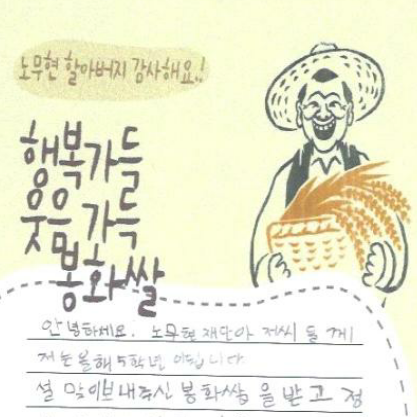 노무현 할아버지 감사해요.!
행복가득
웃음가득
봉화쌀
안녕하세요. 노무현재단아 저씨 들 께
저는올해5학년 이됩니다
설 맞이보내주신 봉화쌀을받고 정